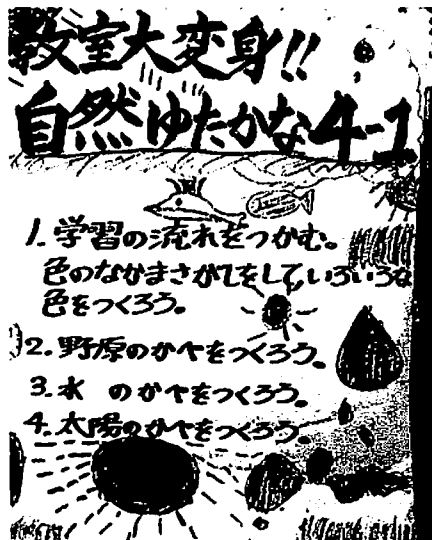 教室大変身!!
自然ゆたかな4-1
1.学習の流れをつかむ。
色のなかまさがしをしていろいろな
色をつくろう。
2.野原のかべをつくろう。
3.水 のかべをつくろう。
4.太陽のかべをつくろう。